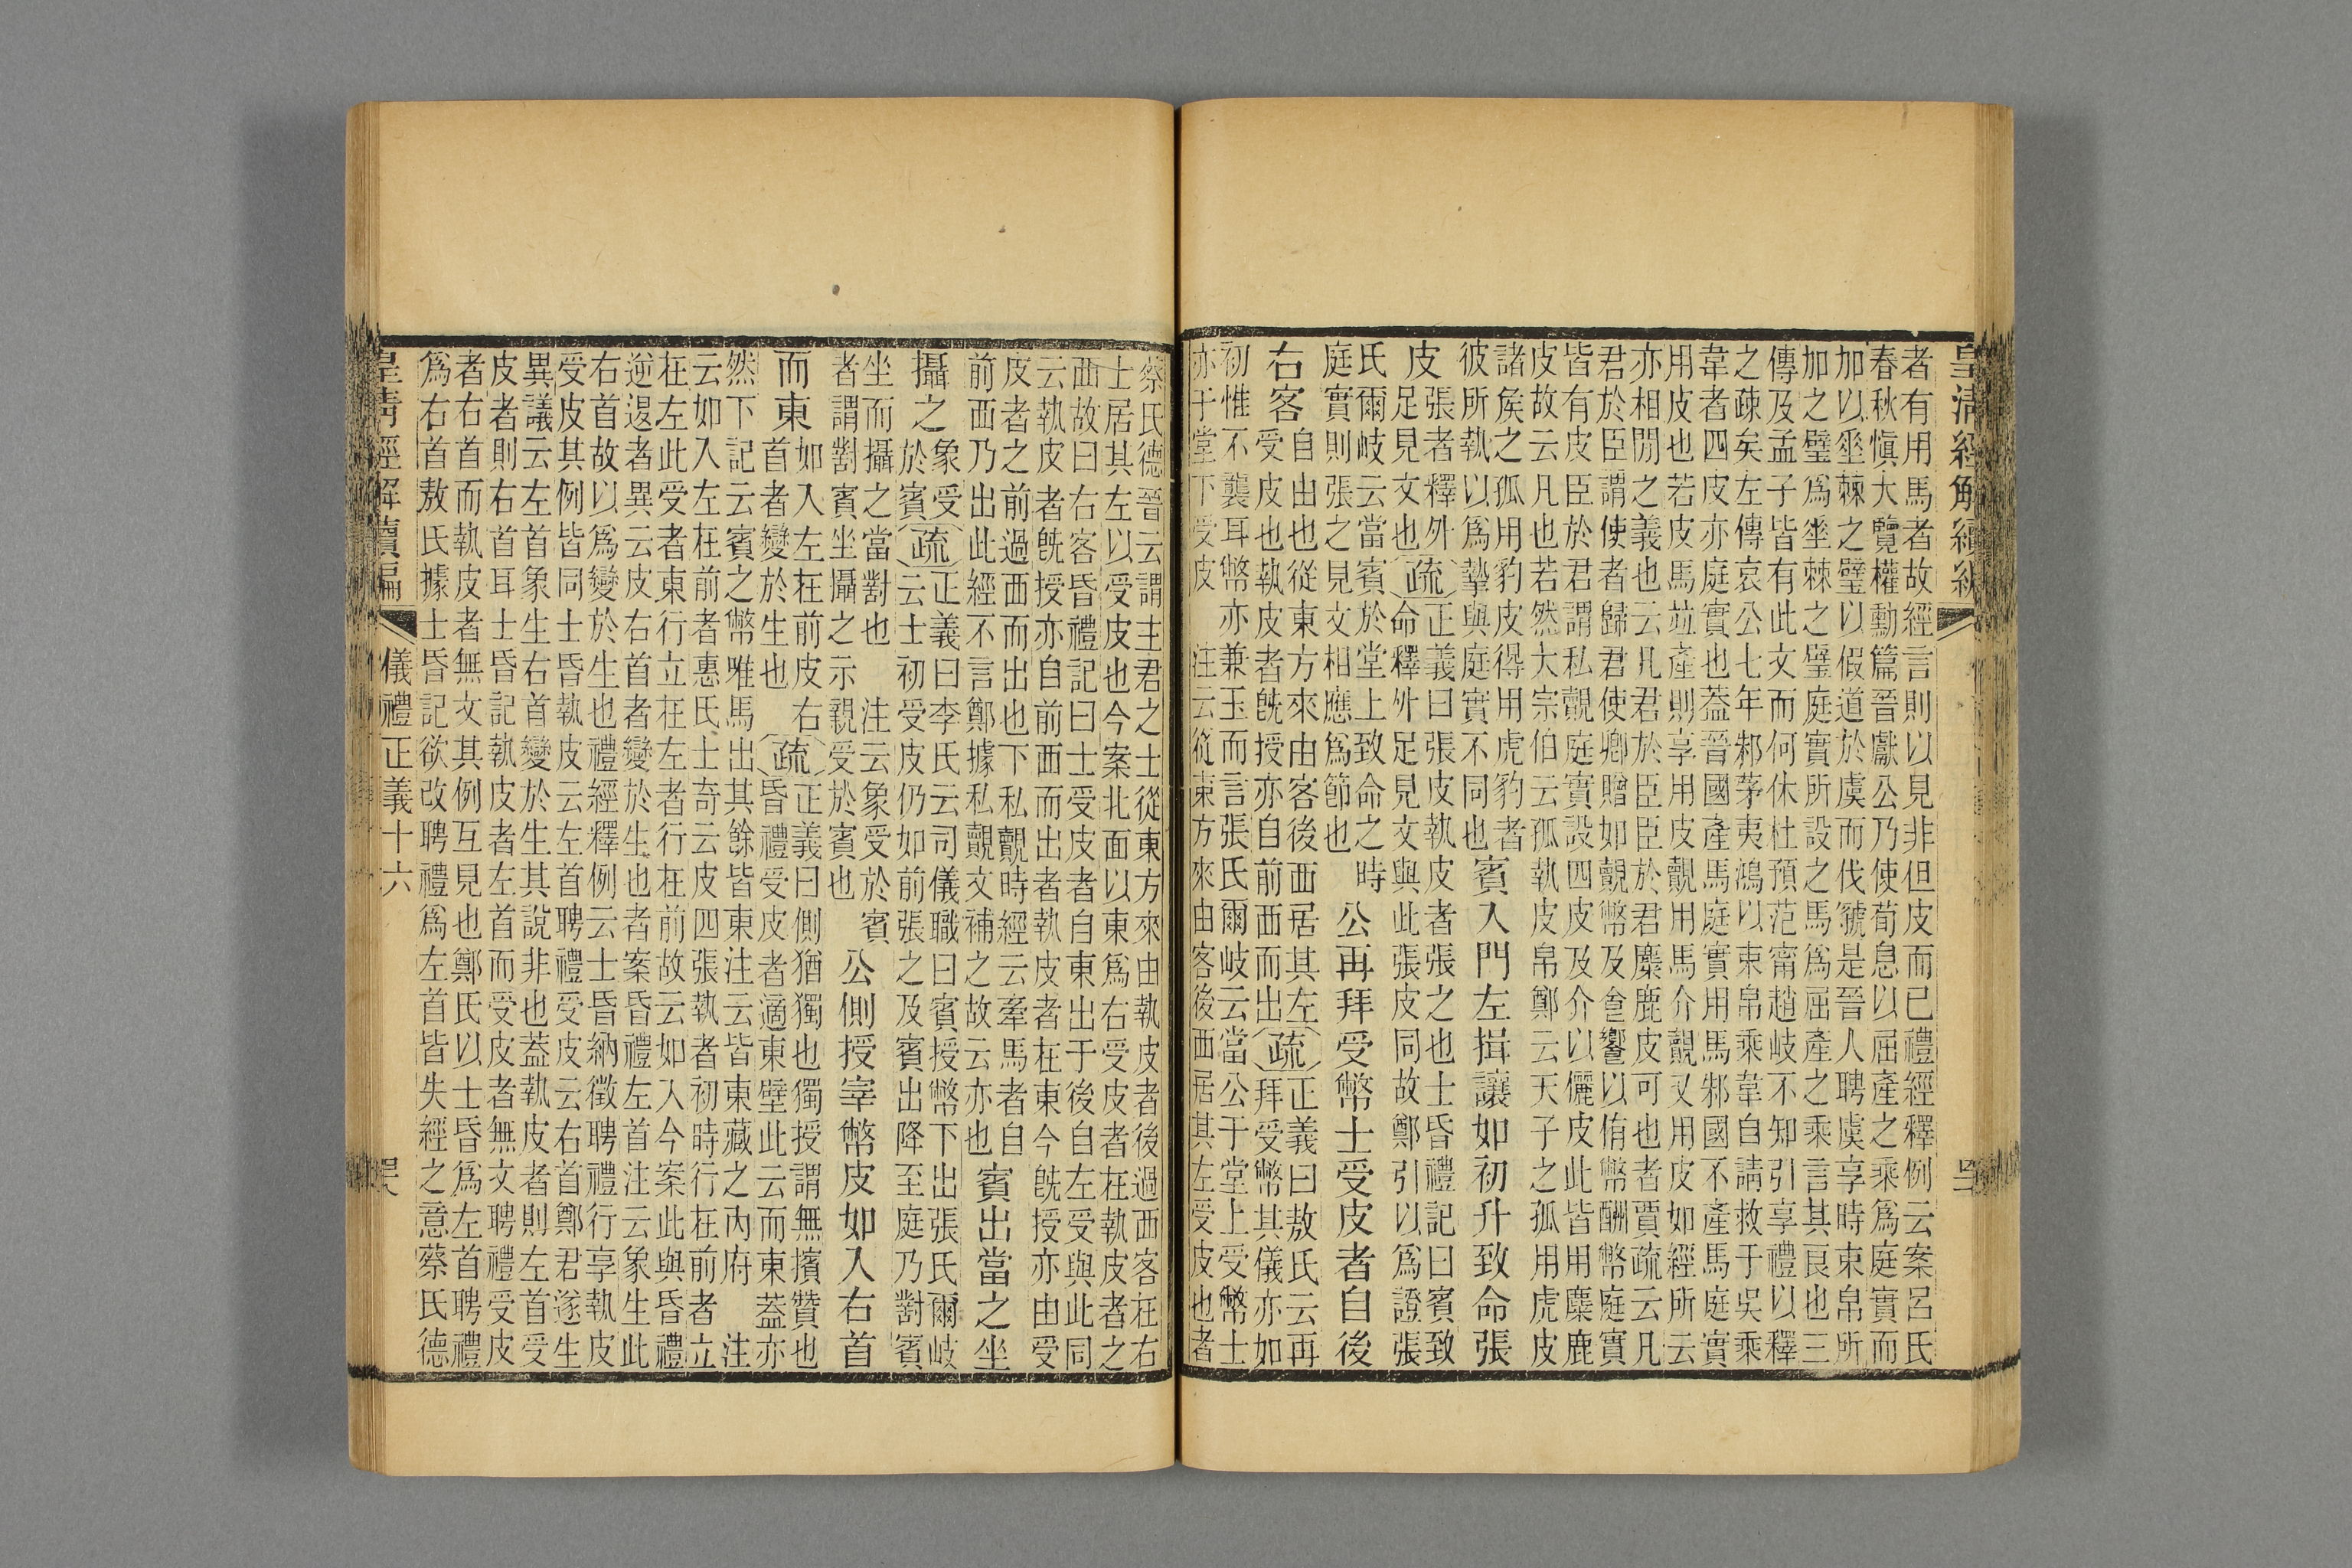 皇清經解續編
者有用馬者故經言則以見非但皮而已禮經釋例云案呂氏
春秋愼大覽權勳篇晉獻公乃使荀息以屈產之乘爲庭實而
加以垂棘之璧以假道於虞而伐虢是晉人聘虞享時束帛所
加之璧爲垂棘之璧庭實所設之馬爲屈產之乘言其良也三
傳及孟子皆有此文而何休杜預范甯趙岐不知引享禮以釋
之疎矣左傳哀公七年邾茅夷鴻以束帛乘韋自請救于吳乘
韋者四皮亦庭實也蓋晉國產馬庭實用馬邾國不產馬庭實
用皮也若皮馬竝產則享用皮覿用馬介覿又用皮如經所云
亦相閒之義也云凡君於臣臣於君麋鹿皮可也者賈疏云凡
君於臣謂使者歸君使卿贈如覿幣及食饗以侑幣酬幣庭實
皆有皮臣於君謂私覿庭實設四皮及介以儷皮此皆用麋鹿
皮故云凡也若然大宗伯云孤執皮帛鄭云天子之孤用虎皮
諸矦之孤用豹皮得用虎豹者
彼所執以爲摯與庭實不同也
賓入門左揖讓如初升致命張
皮
張者釋外
足見文也
疏
正義曰張皮執皮者張之也士昏禮記曰賓致
命釋外足見文與此張皮同故鄭引以爲證張
氏爾岐云當賓於堂上致命之時
庭實則張之見文相應爲節也
公再拜受幣士受皮者自後
右客
自由也從東方來由客後西居其左
受皮也執皮者旣授亦自前西而出
疏
正義曰敖氏云再
拜受幣其儀亦如
初惟不襲耳幣亦兼玉而言張氏爾岐云當公于堂上受幣士
亦于堂下受皮　注云從東方來由客後西居其左受皮也者
蔡氏德晉云謂主君之士從東方來由執皮者後過西客在右
士居其左以受皮也今案北面以東爲右受皮者在執皮者之
西故曰右客昏禮記曰士受皮者自東出于後自左受與此同
云執皮者旣授亦自前西而出者執皮者在東今旣授亦由受
皮者之前過西而出也下私覿時經云牽馬者自
前西乃出此經不言鄭據私覿文補之故云亦也
賓出當之坐
攝之
象受
於賓
疏
正義曰李氏云司儀職曰賓授幣下出張氏爾岐
云士初受皮仍如前張之及賓出降至庭乃對賓
坐而攝之當對也　注云象受於賓
者謂對賓坐攝之示親受於賓也
公側授宰幣皮如入右首
而東
如入左在前皮右
首者變於生也
疏
正義曰側猶獨也獨授謂無擯贊也
昏禮受皮者適東壁此云而東蓋亦
然下記云賓之幣唯馬出其餘皆東注云皆東藏之內府　注
云如入左在前者惠氏士奇云皮四張執者初時行在前者立
在左此受者東行立在左者行在前故云如入今案此與昏禮
逆退者異云皮右首者變於生也者案昏禮左首注云象生此
右首故以爲變於生也禮經釋例云士昏納徵聘禮行享執皮
受皮其例皆同士昏執皮云左首聘禮受皮云右首鄭君遂生
異議云左首象生右首變於生其說非也蓋執皮者則左首受
皮者則右首耳士昏記執皮者左首而受皮者無文聘禮受皮
者右首而執皮者無文其例互見也鄭氏以士昏爲左首聘禮
爲右首敖氏據士昏記欲改聘禮爲左首皆失經之意蔡氏德
皇清經解續編
儀禮正義十六